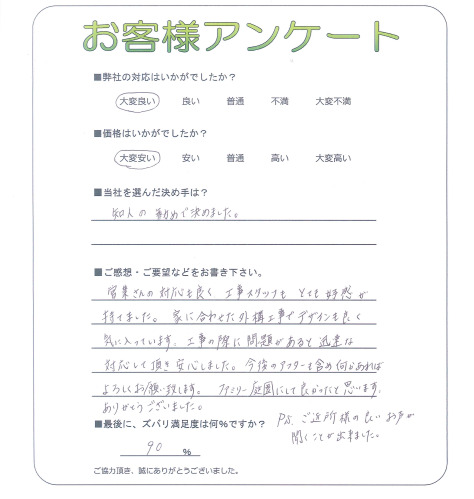 お客様アンケート
■弊社の対応はいかがでしたか？
大変良い 良い 普通 不満 大変不満
■価格はいかがでしたか？
大変安い 安い 普通 高い 大変高い
■当社を選んだ決め手は？
知人の勧めで決めました。
■ご感想・ご要望などをお書き下さい。
営業さんの対応も良く 工事スタッフも とても好感が
持てました。家に合わせた外構工事でデザインも良く
気に入っています。工事の際に問題があると迅速な
対応して頂き安心しました。今後のアフターも含め何かあれば
よろしくお願い致します。ファミリー庭園にして良かったと思います。
ありがとうございました。
■最後に、ズバリ満足度は何%ですか？
90 %
P.S. ご近所様の良いお声が
聞くことが出来ました。
ご協力頂き、誠にありがとうございました。